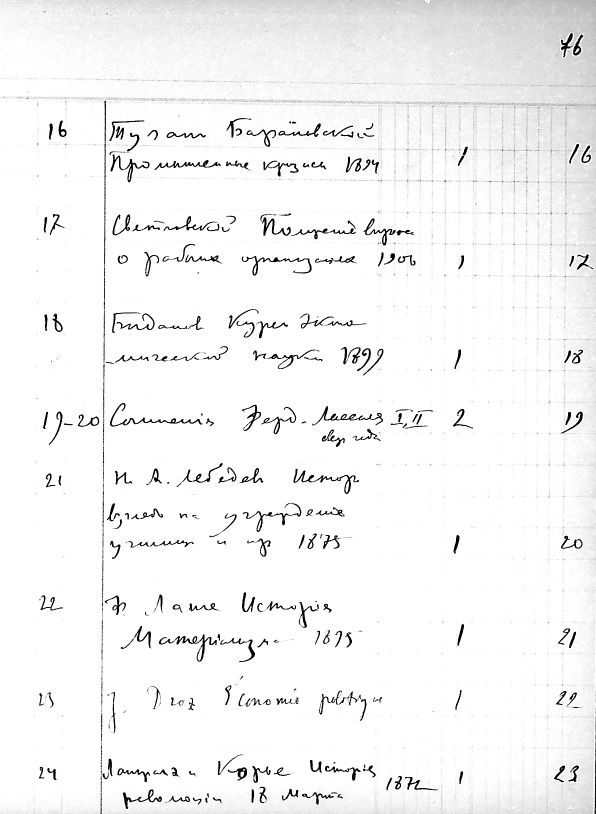 76
16 Туган Барановский
Промышленные кризисы 1894 1 16
17 Святловский Положение вопроса
о рабочих организациях 1906 1 17
18 Богданов Курс эконо
мической науки 1899 1 18
19-20 Сочинения Ферд. Лассаля I, II 2 19
21 Н. А. Лебедев Истор
взгляд на учреждение
училищ и пр 1875 1 20
22 Ф Ланге Исторія
Матеріализма 1895 1 21
23 J. Droz Économie politique 1 22
24 Корье Исторія
революціи 18 Марта 1872 1 23